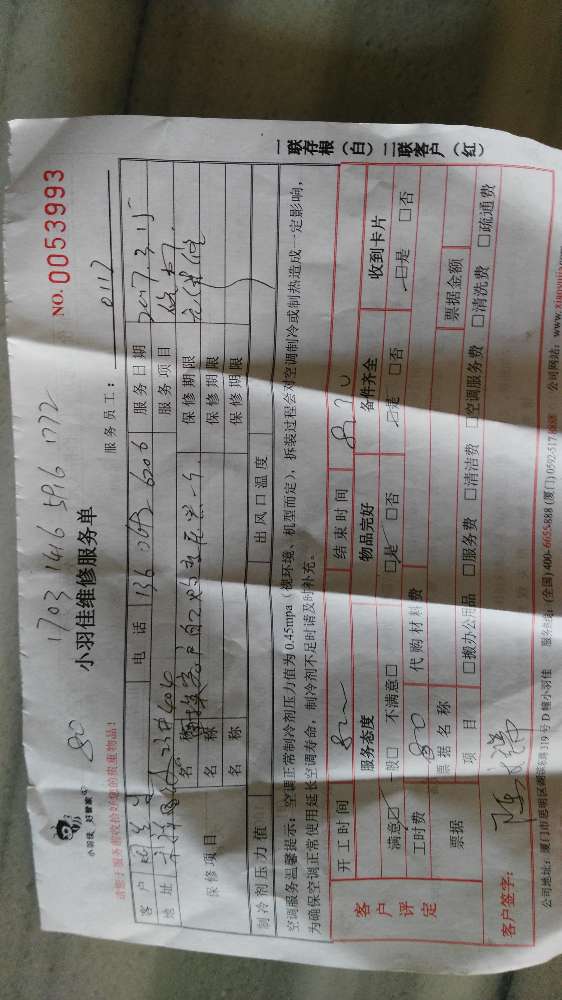 1703 1416 5916 1772
小羽佳维修服务单
NO. 0053993
80
小羽佳，好管家
服务员工： 0117
请您于服务前收拾好您的贵重物品！
客户
电话 136 0693 6206
服务日期 2017.3.15
地址
服务项目
保修项目
名称
保修期限
名称
保修期限
名称
保修期限
制冷剂压力值
出风口温度
空调服务温馨提示：空调正常制冷剂压力值为0.45mpa（视环境、机型而定），拆装过程会对空调制冷或制热造成一定影响，
为确保空调正常使用延长空调寿命，制冷剂不足时请及时补充。
开工时间
结束时间
客户评定
服务态度
物品完好
备件齐全
收到卡片
满意☑ 一般□ 不满意□
☑是 □否
☑是 □否
☑是 □否
工时费 80
代购材料费
票据
票据名称
票据金额
项目
□搬办公用品 □服务费 □清洁费 □空调服务费 □清洗费 □疏通费
客户签字：
一联存根（白）二联客户（红）
公司地址：厦门市思明区 319号D幢小羽佳 服务热线：（全国）400-6655-888（厦门）0592-517 公司网站：www.